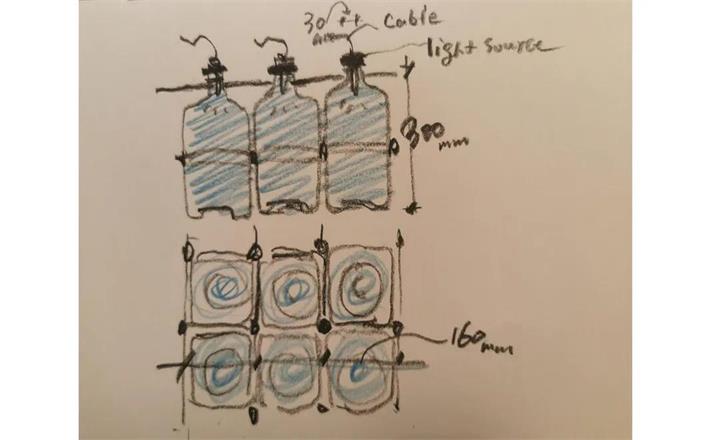 30
Cable
light source
300
mm
160mm